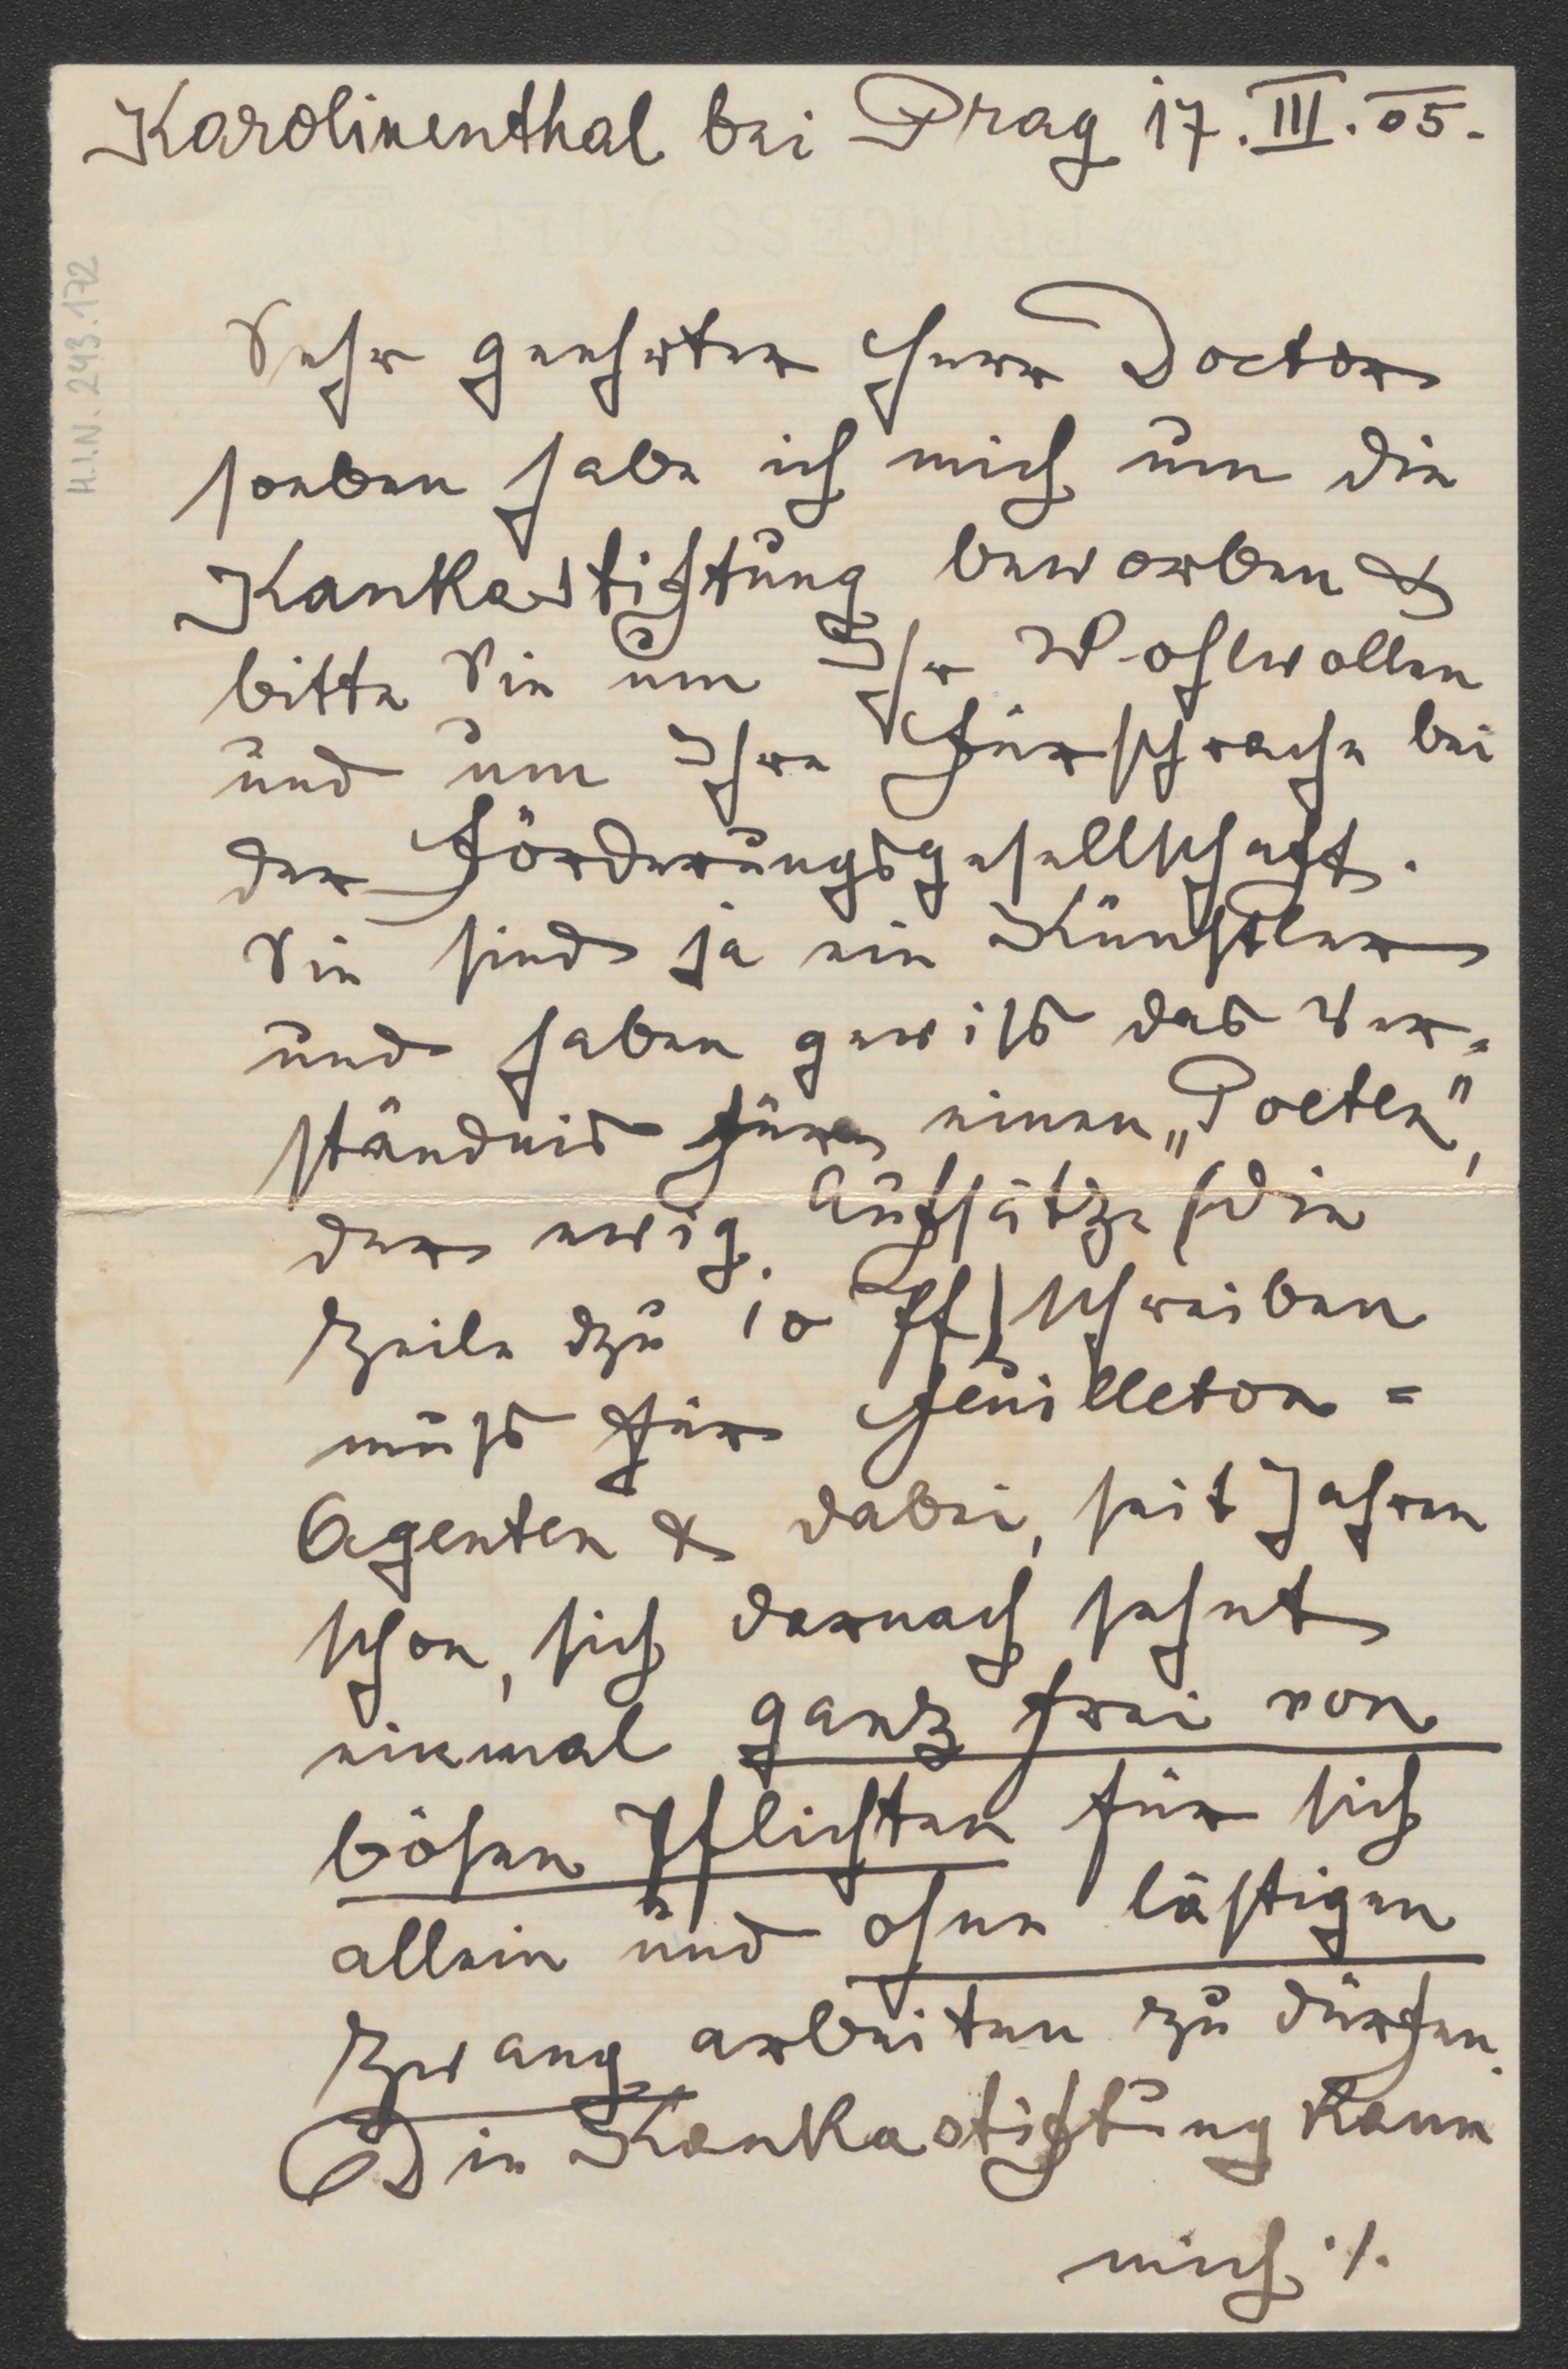 Karolinenthal bei Prag 17.III.05.
H.I.N. 243.172
Sehr geehrter Herr Doctor
soeben habe ich mich um die
Kankastiftung beworben &
bitte Sie um Ihr Wohlwollen
und um Ihre Fürsprache bei
der Förderungsgesellschaft.
Sie sind ja ein Künstler
und haben gewiß das Ver-
ständnis für einen „Poeten",
der ewig Aufsätze (die
Zeile zu 10 Pf) schreiben
muß für Feuilleton-
Agenten & dabei, seit Jahren
schon, sich darnach sehnt
einmal ganz frei von
bösen Pflichten für sich
allein und ohne lästigen
Zwang arbeiten zu dürfen.
Die Kankastiftung kann
mich ./.